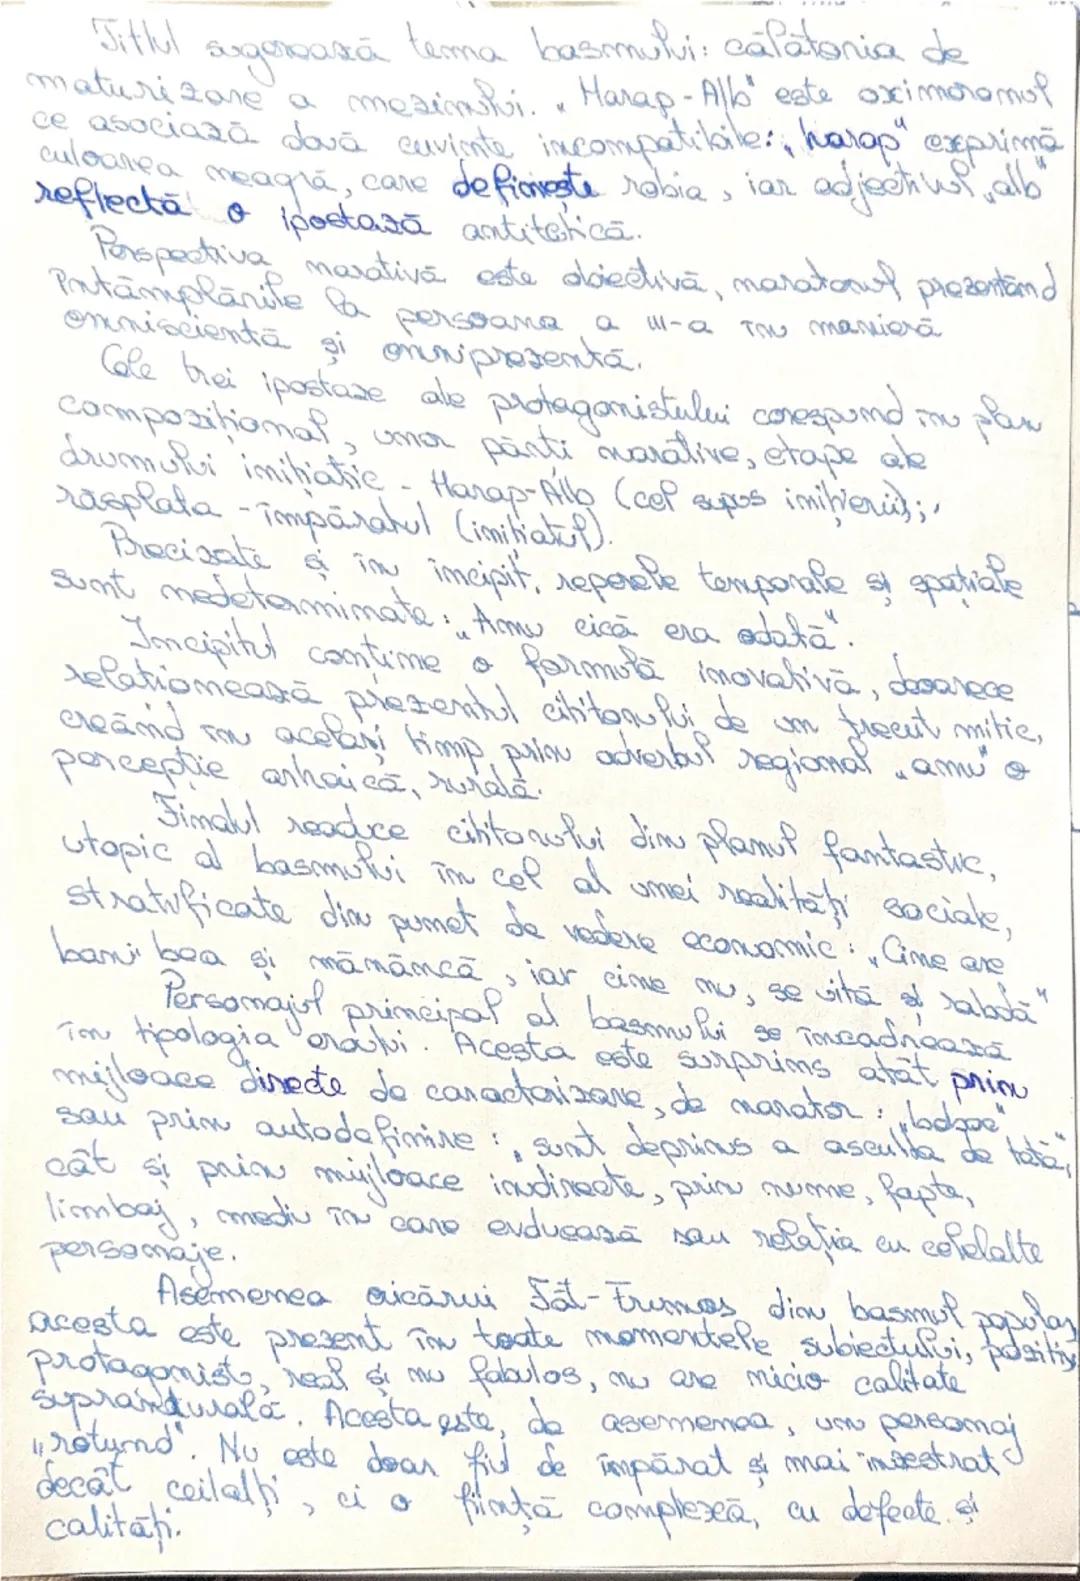 Titlul sugerează tema basmului: călătoria de
maturizare a mezinului. „Harap-Alb" este oximoronul
ce asociază două cuvinte incompatibile: „harap" exprimă
culoarea neagră, care definește robia, iar adjectivul „alb"
reflectă o ipostază antitetică.
Perspectiva narativă este obiectivă, naratorul prezentând
întâmplările la persoana a III-a în manieră
omniscientă și omniprezentă.
Cele trei ipostaze ale protagonistului corespund în plan
compozițional, unor părți narative, etape ale
drumului inițiatic - Harap-Alb (cel supus inițierii);
răsplata - împăratul (inițiatul).
Precizate și în incipit, reperele temporale și spațiale
sunt nedeterminate: „Amu cică era odată".
Incipitul conține o formulă inovativă, deoarece
relaționează prezentul cititorului de un trecut mitic,
creând în același timp, prin adverbul regional „amu" o
percepție arhaică, rurală.
Finalul readuce cititorului din planul fantastic,
utopic al basmului în cel al unei realități sociale,
stratificate din punct de vedere economic: „Cine are
bani bea și mănâncă, iar cine nu, se uită și rabdă"
Personajul principal al basmului se încadrează
în tipologia eroului. Acesta este surprins atât prin
mijloace directe de caracterizare, de narator: „boboc"
sau prin autodefinire: „sunt deprins a asculta de tată",
cât și prin mijloace indirecte, prin nume, fapte,
limbaj, mediu în care evduează sau relația cu celelalte
personaje.
Asemenea oricărui Făt-Frumos din basmul popular
acesta este prezent în toate momentele subiectului, pozitiv,
protagonist, real și nu fabulos, nu are nicio calitate
supranaturală. Acesta este, de asemenea, un personaj
„rotund". Nu este doar fiul de împărat și mai înzestrat
decât ceilalți, ci o ființă complexă, cu defecte și
calități.